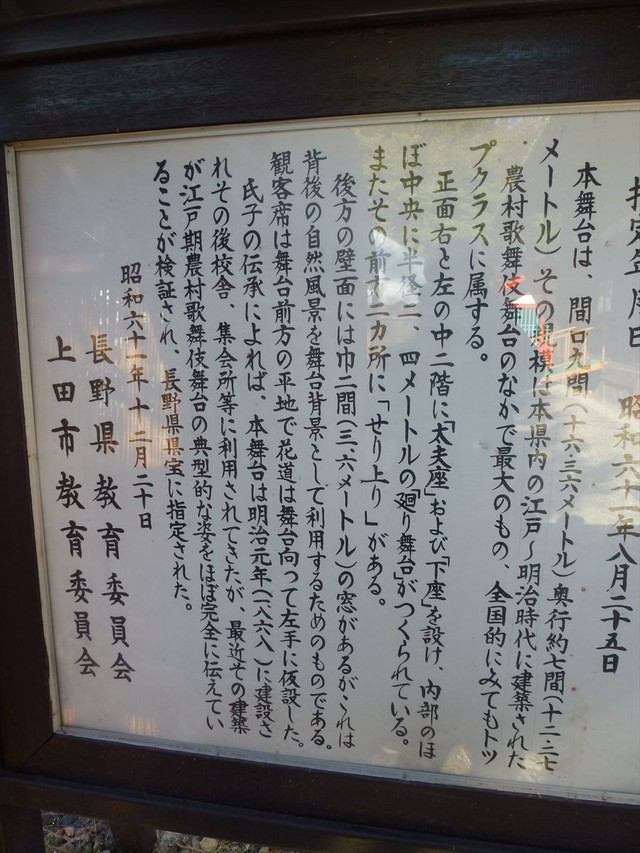 指定年月日 昭和六十一年八月二十五日
本舞台は、間口九間(十六・三六メートル)奥行約七間(十二・二七
メートル)その規模は本県内の江戸〜明治時代に建築された
農村歌舞伎舞台のなかで最大のもの、全国的にみてもトッ
プクラスに属する。
正面右と左の中二階に「太夫座」および「下座」を設け、内部のほ
ぼ中央に半径二、四メートルの廻り舞台がつくられている。
またその前す二カ所に「せり上り」がある。
後方の壁面には巾二間(三、六メートル)の窓があるがこれは
背後の自然風景を舞台背景として利用するためのものである。
観客席は舞台前方の平地で花道は舞台向って左手に仮設した。
氏子の伝承によれば、本舞台は明治元年(一八六八)に建設さ
れその後校舎、集会所等に利用されてきたが、最近その建築
が江戸期農村歌舞伎舞台の典型的な姿をほぼ完全に伝えてい
ることが検証され、長野県県宝に指定された。
昭和六十一年十二月二十日
長野県教育委員会
上田市教育委員会